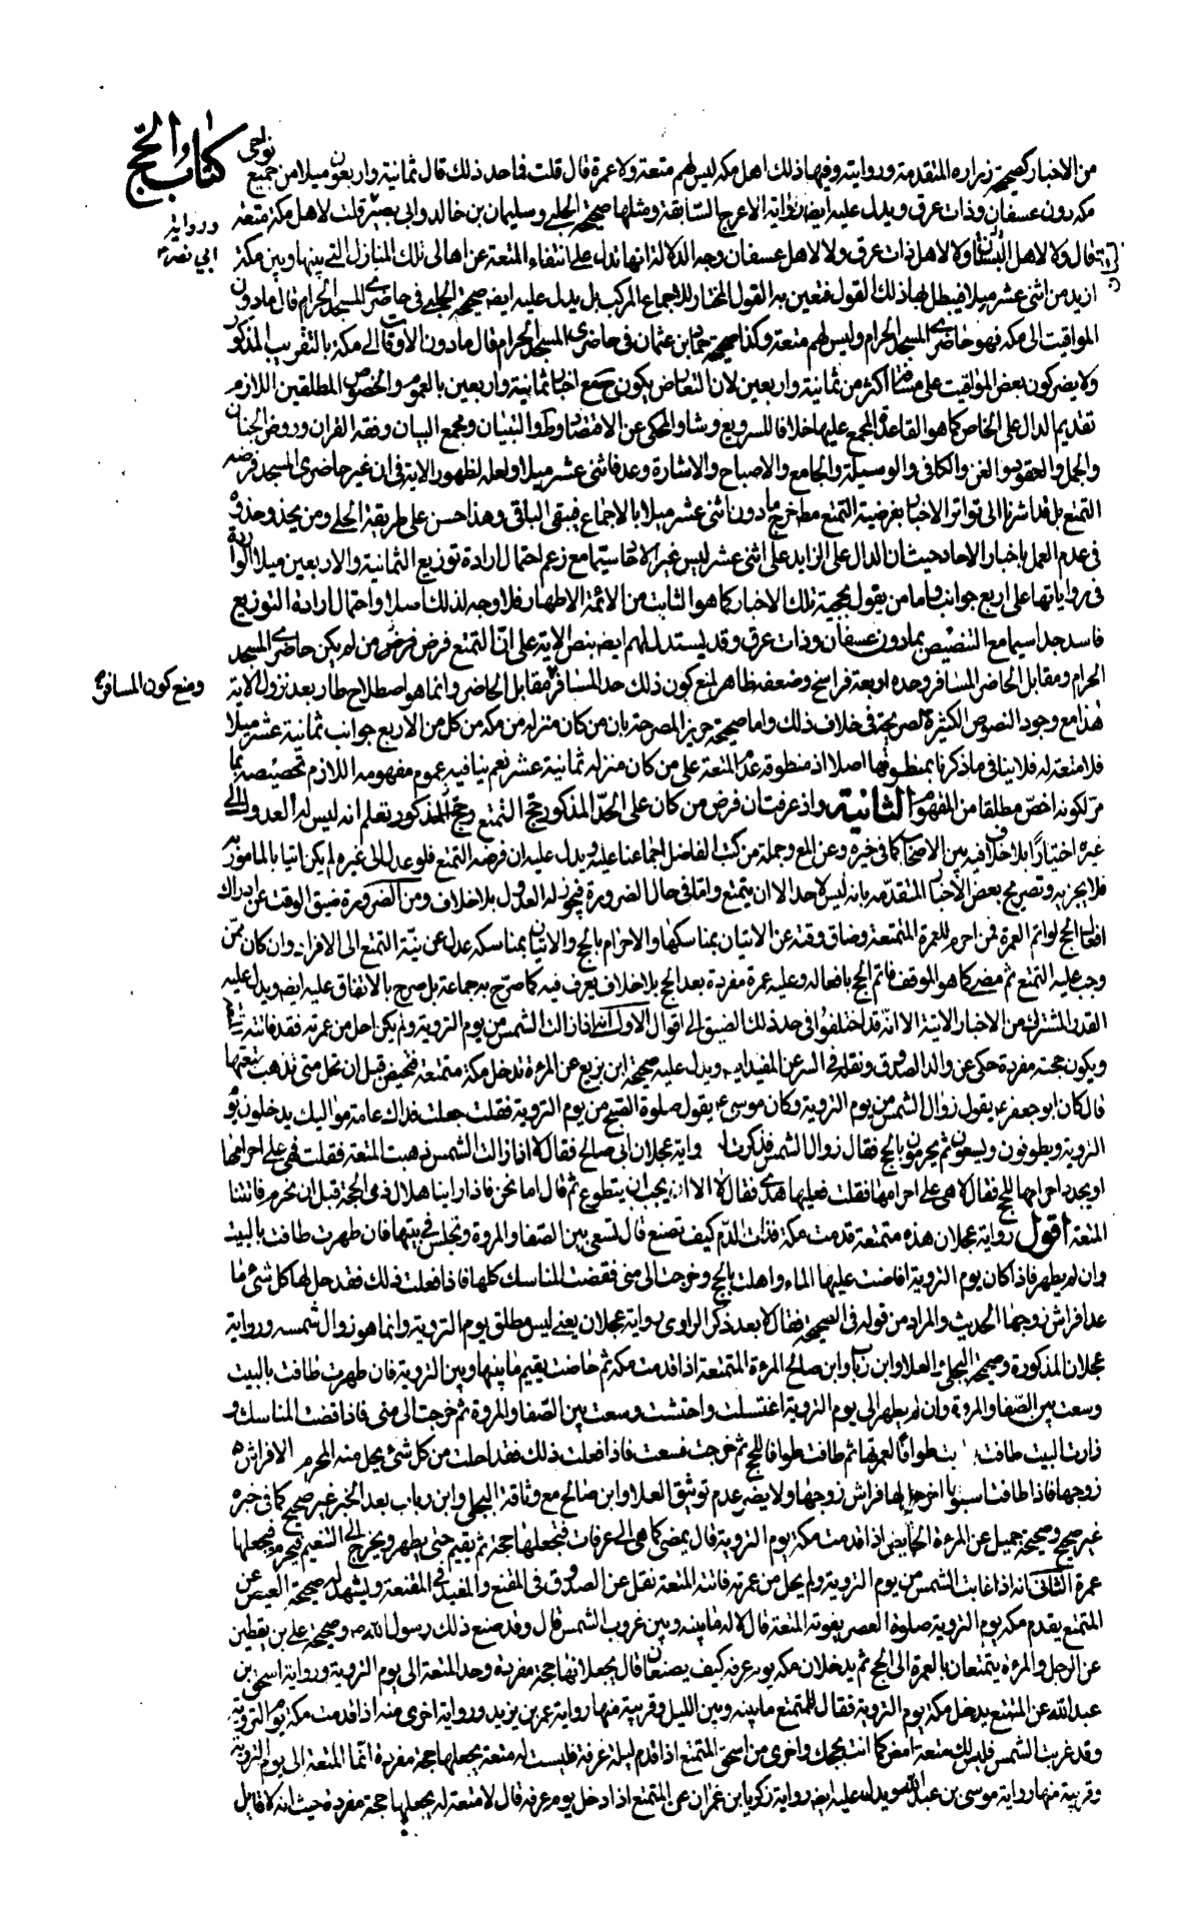 كتاب الحج
من الاخبار كصحيحة زراره المتقدمة وروايته وفيها ذلك اهل مكه ليس لهم متعة ولا عمرة قال قلت فما حد ذلك قال ثمانية واربعون ميلا من جميع نواحى
مكه دون عسفان وذات عرق ويدل عليه ايضا رواية الاعرج السابقة ومثلها صحيحة الحلبي وسليمان بن خالد وابى بصير قلت لاهل مكة متعة
ورواية
ابي نصر
قال لا ولا لاهل البستان ولا لاهل ذات عرق ولا لاهل عسفان وجه الدلالة انها تدل على انتفاء المتعة عن اهالى تلك المنازل التي بينها وبين مكة
ازيد من اثنى عشر ميلا فيبطل بها ذلك القول فتعين به القول المختار للاجماع المركب بل يدل عليه ايضا صحيحة الحلبي في حاضرى المسجد الحرام قال مادون
المواقيت الى مكه فهو حاضرى المسجد الحرام وليس لهم متعة وكذا صحيحة حماد بن عثمان فى حاضرى المسجد الحرام قال مادون الاوقات الى مكة بالتقريب المذكور
ولا يضر كون بعض المواقيت على مسافة اكثر من ثمانية واربعين لان التعارض يكون مع اخبار ثمانية واربعين بالعموم والخصوص المطلقين اللازم
تقديم الدال على الخاص كما هو القاعدة المجمع عليها خلافا للسرويع وشاو المحكى عن الاقتصاد وط والتبيان ومجمع البيان وفقه القران وروض الجنان
والجمل والعقود والغنية والكافى والوسيلة والجامع والاصباح والاشارة وعد فاثنى عشر ميلا ولعله لظهور الاية فى ان غير حاضرى المسجد فرضه
التمتع بل قد اشرنا الى تواتر الاخبار بفرضية التمتع مط خرج مادون اثنى عشر ميلا بالاجماع فيبقى الباقى وهذا حسن على طريقة الحلي ومن يحذو حذوه
فى عدم العمل باخبار الاحاد حيث ان الدال على الزايد على اثنى عشر ليس غير الاحاد سيما مع زعم احتمال ارادة توزيع الثمانية والاربعين ميلا الواردة
فى رواياتها على اربع جوانب واما من يقول بحجية تلك الاخبار كما هو الثابت من الائمة الاطهار فلا وجه لذلك اصلا واحتمال ارادة التوزيع
فاسد جدا سيما مع التنصيص بمادون عسفان وذات عرق وقد يستدل لهم ايضا بنص الاية على ان التمتع فرض من لم يكن حاضرى المسجد
الحرام ومقابل الحاضر المسافر وحده اربعة فراسخ وضعفه ظاهر لمنع كون ذلك حد المسافر مقابل الحاضر وانما هو اصطلاح طار بعد نزول الاية
ومنع كون المسافر
هذا مع وجود النصوص الكثيرة الصريحة فى خلاف ذلك واما صحيحة حريز المصرحة بان من كان منزله من مكه من كل من الاربع جوانب ثمانية عشر ميلا
فلا متعة له فلا ينافى ما ذكرنا بمنطوقها اصلا اذ منطوقه عدم المتعة على من كان منزله ثمانية عشر نعم ينافيه عموم مفهومه اللازم تخصيصه بما
مر لكونه اخص مطلقا من المفهوم الثانية واذ عرفت ان فرض من كان على الحد المذكور حج التمتع تعلم انه ليس له العدول الى
غيره اختيارا بلا خلاف فيه بين الاصحاب كما فى خيره وعن المع وجملة من كتب الفاضل اجماعنا عليه ويدل عليه ان فرضه التمتع فلو عدل الى غيره لم يكن اتيا بالمامور به
فلا يجزيه وتصريح بعض الاخبار المتقدمه بانه ليس لاحد الا ان يتمتع واما فى حال الضرورة فيجوز له العدول بلا خلاف ومن الضرورة ضيق الوقت عن ادراك
افعال الحج لو اتم العمرة فمن احرم للعمرة المتمتعة وضاق وقته عن الاتيان بمناسكها والاحرام بالحج والاتيان بمناسكه عدل عن نية التمتع الى الافراد وان كان ممن
وجب عليه التمتع ثم مضى كما هو الموقف فاتم الحج بافعاله وعليه عمرة مفردة بعد الحج بلا خلاف يعرف فيه كما صرح به جماعة بل صرح بالاتفاق عليه ايضا ويدل عليه
القدر المشترك من الاخبار الاتية الا انه قد اختلفوا فى حد ذلك الضيق الى اقوال الاول انه اذا زالت الشمس من يوم التروية ولم يكن احل من عمرته فقد فاتته المتعة
ويكون حجته مفردة حكى عن والد الصدوق ونقله فى السر عن المفيد ايضا ويدل عليه صحيحة ابن بزيع عن المرءة تدخل مكة متمتعة فتحيض قبل ان تحل متى تذهب متعتها
قال كان ابو جعفر ع يقول زوال الشمس من يوم التروية وكان موسى ع يقول صلوة الصبح من يوم التروية فقلت جعلت فداك عامة مواليك يدخلون يوم
التروية ويطوفون ويسعون ثم يحرمون بالحج فقال زوال الشمس فذكرت له رواية عجلان ابى صالح فقال لا اذا زالت الشمس ذهبت المتعة فقلت فهى على احرامها
او يجدد احرامها للحج فقال لا هى على احرامها فقلت فعليها هدى فقال لا الا ان يحب ان يتطوع ثم قال اما نحن فاذا راينا هلال ذى الحجة قبل ان نحرم فاتتنا
المتعة اقول رواية عجلان هذه متمتعة قدمت مكة فرات الدم كيف تصنع قال تسعى بين الصفا والمروة وتجلس فى بيتها فان طهرت طافت بالبيت
وان لم يطهر فاذا كان يوم التروية افاضت عليها الماء واهلت بالحج وخرجت الى منى فقضت المناسك كلها فاذا فعلت ذلك فقد حل لها كل شئ ما
عدا فراش زوجها الحديث والمراد من قوله فى الصحيحة فقال لا بعد ذكر الراوى رواية عجلان يعنى ليس مطلق يوم التروية وانما هو زوال شمسه ورواية
عجلان المذكورة وصحيحة البجلى والعلا وابن رباب وابن صالح المرءة المتمتعة اذا قدمت مكه ثم حاضت يقيم ما بينها وبين التروية فان طهرت طافت بالبيت
وسعت بين الصفا والمروة وان لم يطهر الى يوم التروية اغتسلت واحتشت وسعت بين الصفا والمروة ثم خرجت الى منى فاذا قضت المناسك و
زارت البيت طافت بالبيت طوافا لعمرتها ثم طافت طوافا للحج ثم خرجت فسعت فاذا فعلت ذلك فقد احلت من كل شئ يحل منه المحرم الا فراش
زوجها فاذا طافت اسبوعا اخر حل لها فراش زوجها ولا يضر عدم توثيق العلا وابن صالح مع وثاقة البجلى وابن رباب بعد الخبر غير صحيح كما فى خيره
غير صحيح وصحيحة جميل عن المرءة الحائض اذا قدمت مكة يوم التروية قال يمضى كما هى الى عرفات فتجعلها حجة ثم يقيم حتى يطهر ويخرج الى التنعيم فيحرم فيجعلها
عمرة الثانى انه اذا غابت الشمس من يوم التروية ولم يحل من عمرته فاتته المتعة نقل عن الصدوق فى المقنع والمفيد فى المقنعة ويشهد له صحيحة العيص عن
المتمتع يقدم مكه يوم التروية صلوة العصر يفوته المتعة قال لا له ما بينه وبين غروب الشمس قال وقد صنع ذلك رسول الله ص وصحيحة على بن يقطين
عن الرجل والمرءة يتمتعان بالعمرة الى الحج ثم يدخلان مكه يوم عرفه كيف يصنعان قال يجعلانها حجة مفردة وحد المتعة الى يوم التروية ورواية اسحق بن
عبد الله عن المتمتع يدخل مكة يوم التروية فقال للمتمتع ما بينه وبين الليل وقريبة منها رواية عمر بن يزيد ورواية اخرى منه اذا قدمت مكة يوم التروية
وقد غربت الشمس فليس لك متعة امض كما انت بحجك واخرى من اسحق المتمتع اذا قدم ليلة عرفة فليست له متعة يجعلها حجة مفردة انما المتعة الى يوم التروية
وقريبة منها رواية موسى بن عبد الله ويدل عليه ايضا رواية زكريا بن عمران عن المتمتع اذا دخل يوم عرفه قال لا متعة له يجعلها حجة مفردة حيث انه لا قابل